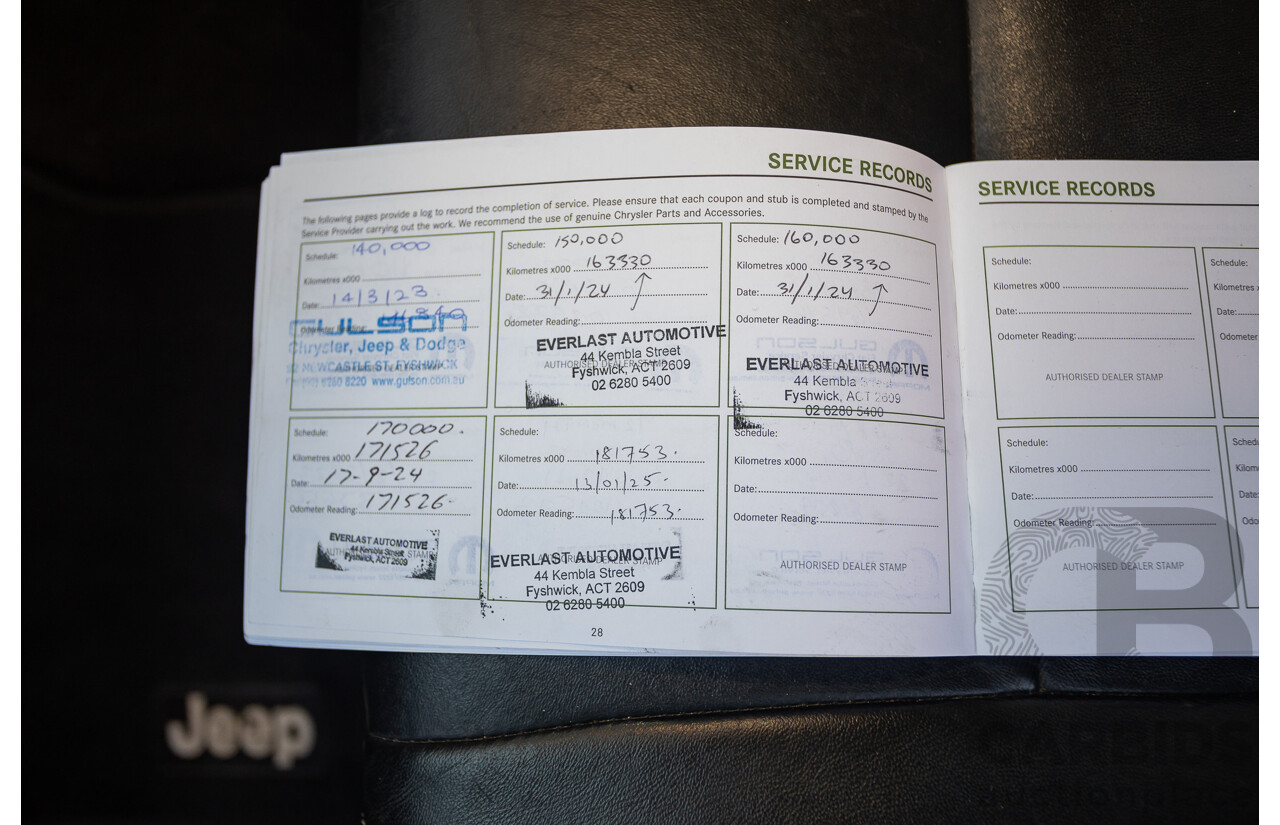 SERVICE RECORDS
The following pages provide a log to record the completion of service. Please ensure that each coupon and stub is completed and stamped by the
Service Provider carrying out the work. We recommend the use of genuine Chrysler Parts and Accessories.
Schedule: 140,000
Kilometres x000
Date: 14/3/23
Odometer Reading:
GULSON
Chrysler, Jeep & Dodge
NEWCASTLE ST, FYSHWICK
6280 8220 www.gulson.com.au
Schedule: 150,000
Kilometres x000 163330
Date: 31/1/24
Odometer Reading:
EVERLAST AUTOMOTIVE
AUTHORISED DEALER STAMP
44 Kembla Street
Fyshwick, ACT 2609
02 6280 5400
Schedule: 160,000
Kilometres x000 163330
Date: 31/1/24
Odometer Reading:
EVERLAST AUTOMOTIVE
AUTHORISED DEALER STAMP
44 Kembla Street
Fyshwick, ACT 2609
02 6280 5400
Schedule: 170000.
Kilometres x000 171526
Date: 17-9-24
Odometer Reading: 171526.
EVERLAST AUTOMOTIVE
44 Kembla Street
Fyshwick, ACT 2609
Schedule:
Kilometres x000 181753.
Date: 13/01/25.
Odometer Reading: 181753.
EVERLAST AUTOMOTIVE
44 Kembla Street
Fyshwick, ACT 2609
02 6280 5400
Schedule:
Kilometres x000
Date:
Odometer Reading:
AUTHORISED DEALER STAMP
28
SERVICE RECORDS
Schedule:
Kilometres x000
Date:
Odometer Reading:
AUTHORISED DEALER STAMP
Schedule:
Kilometres x
Date:
Odometer
Schedule:
Kilometres x000
Date:
Odometer Reading:
AUTHORISED DEALER STAMP
Sched
Kilom
Date:
Odo
Jeep
CARBIDS